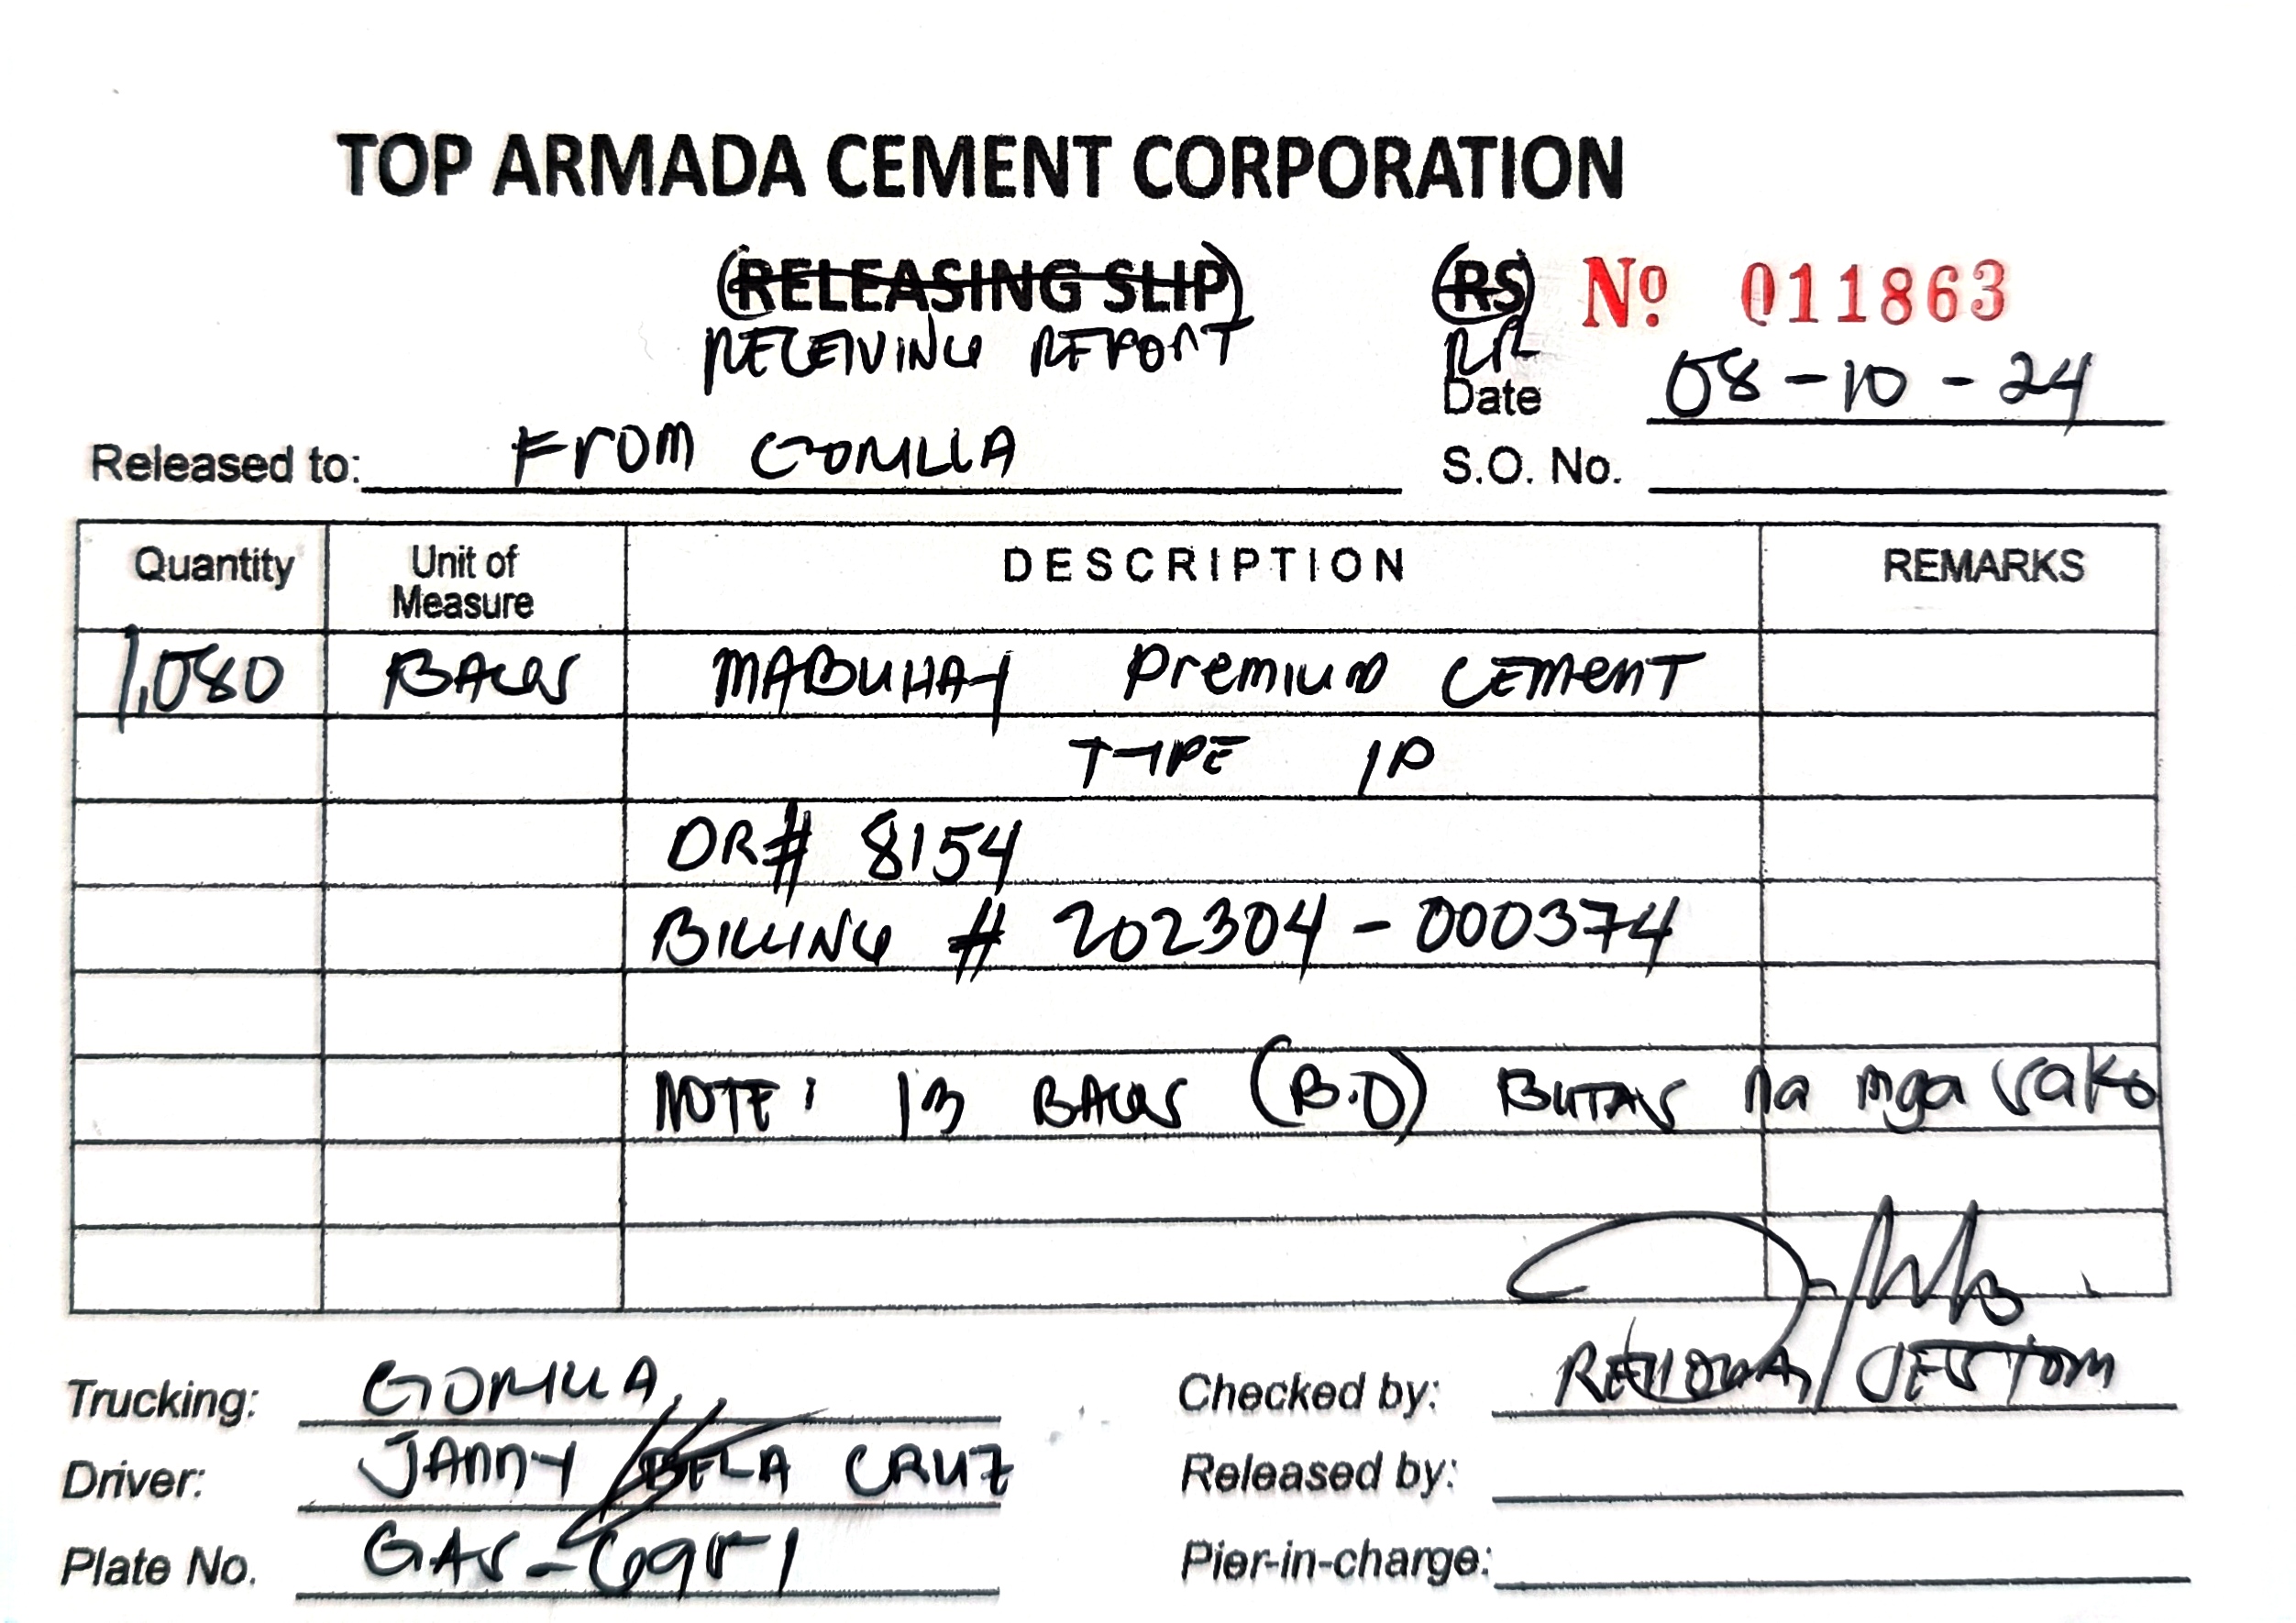 TOP ARMADA CEMENT CORPORATION
(RELEASING SLIP) (RS) Nº 011863
RECEIVING REPORT RR
Date 08-10-24
Released to: FROM GORILLA S.O. No.
Quantity Unit of Measure DESCRIPTION REMARKS
1,080 BAGS MABUHAY Premium CEMENT
TYPE 1P
DR# 8154
BILLING # 202304-000374
NOTE: 13 BAGS (B.O) BUTAS na mga sako
Trucking: GORILLA Checked by: / JESTOM
Driver: JANNY DELA CRUZ Released by:
Plate No. GAS-6951 Pier-in-charge: